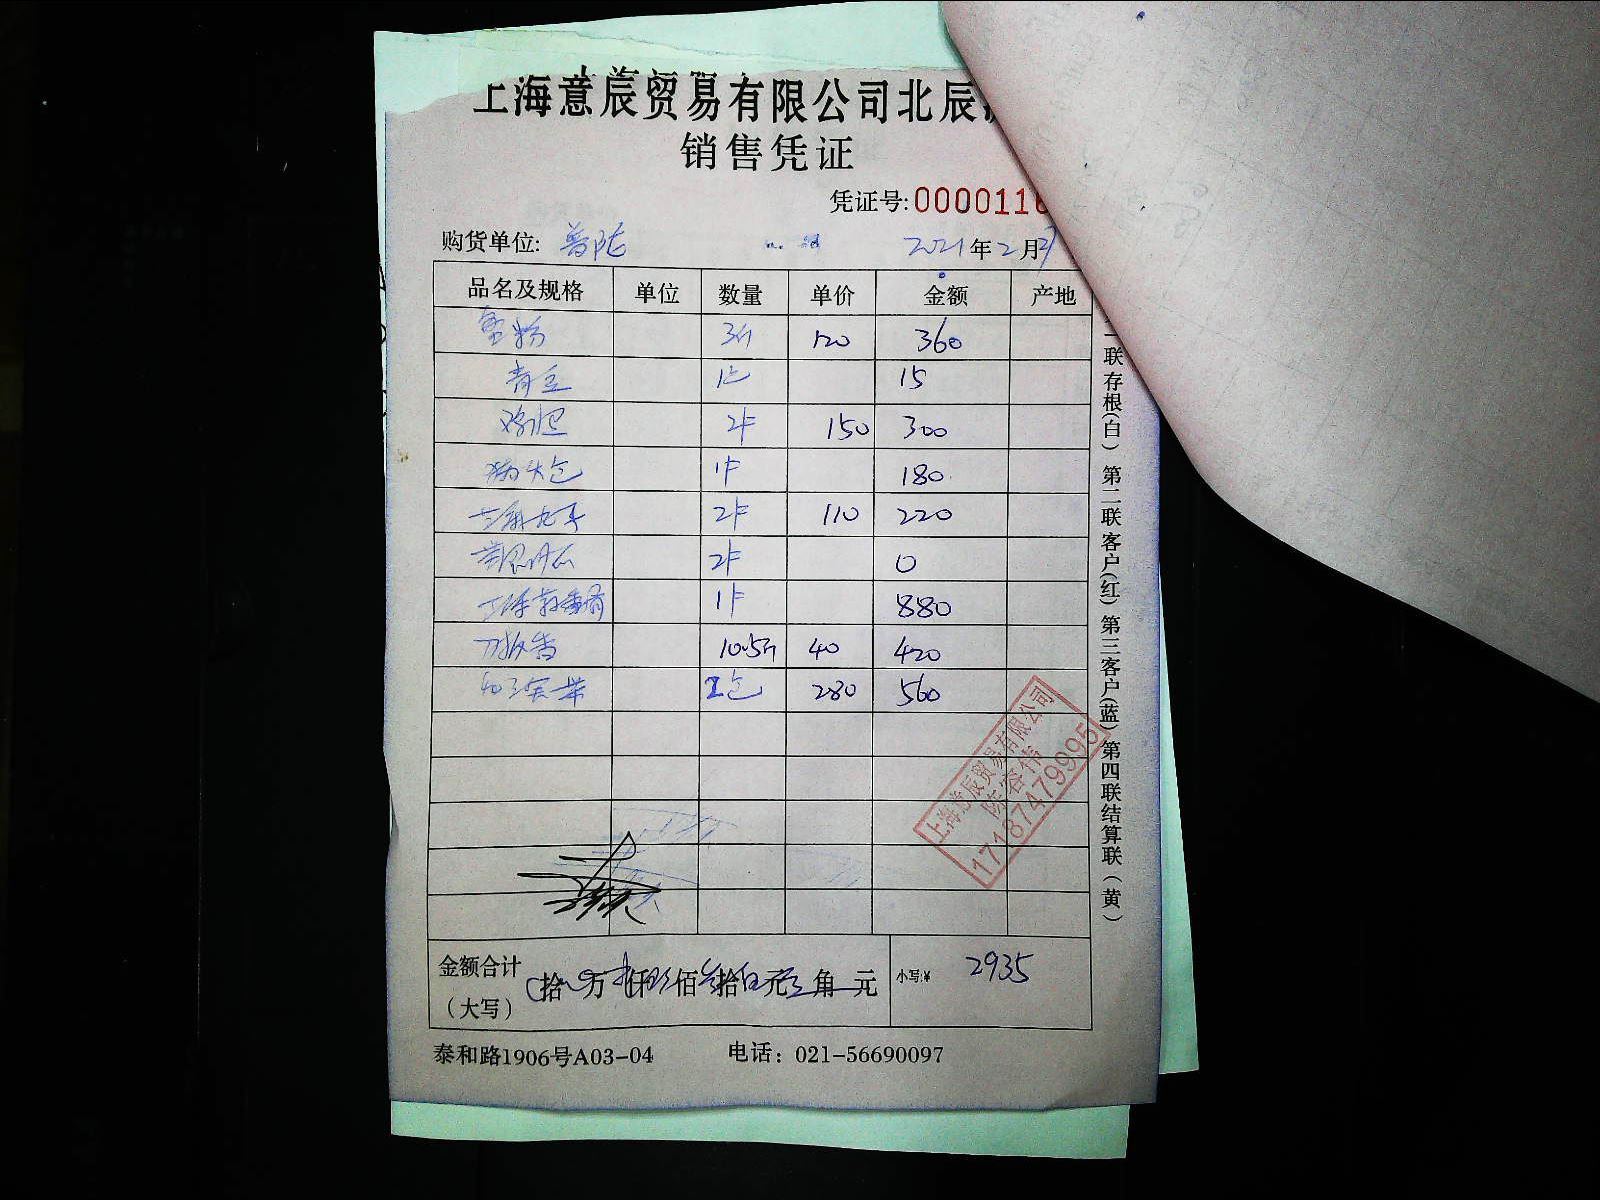 上海意辰贸易有限公司北辰
销售凭证
凭证号:0000116
购货单位: 普陀 2021年2月27
品名及规格 单位 数量 单价 金额 产地
蟹粉 3斤 120 360
青豆 1包 15
2件 150 300
1件 180
2件 110 220
2件 0
1件 880
刀板香 10.5斤 40 420
2包 280 560
金额合计（大写） 拾 万 仟 玖佰 叁拾 伍元 角 元 小写:¥ 2935
泰和路1906号A03-04 电话：021-56690097
一联存根(白) 第二联客户(红) 第三客户(蓝) 第四联结算联(黄)
上海意辰贸易有限公司
陈容伟
17187479995